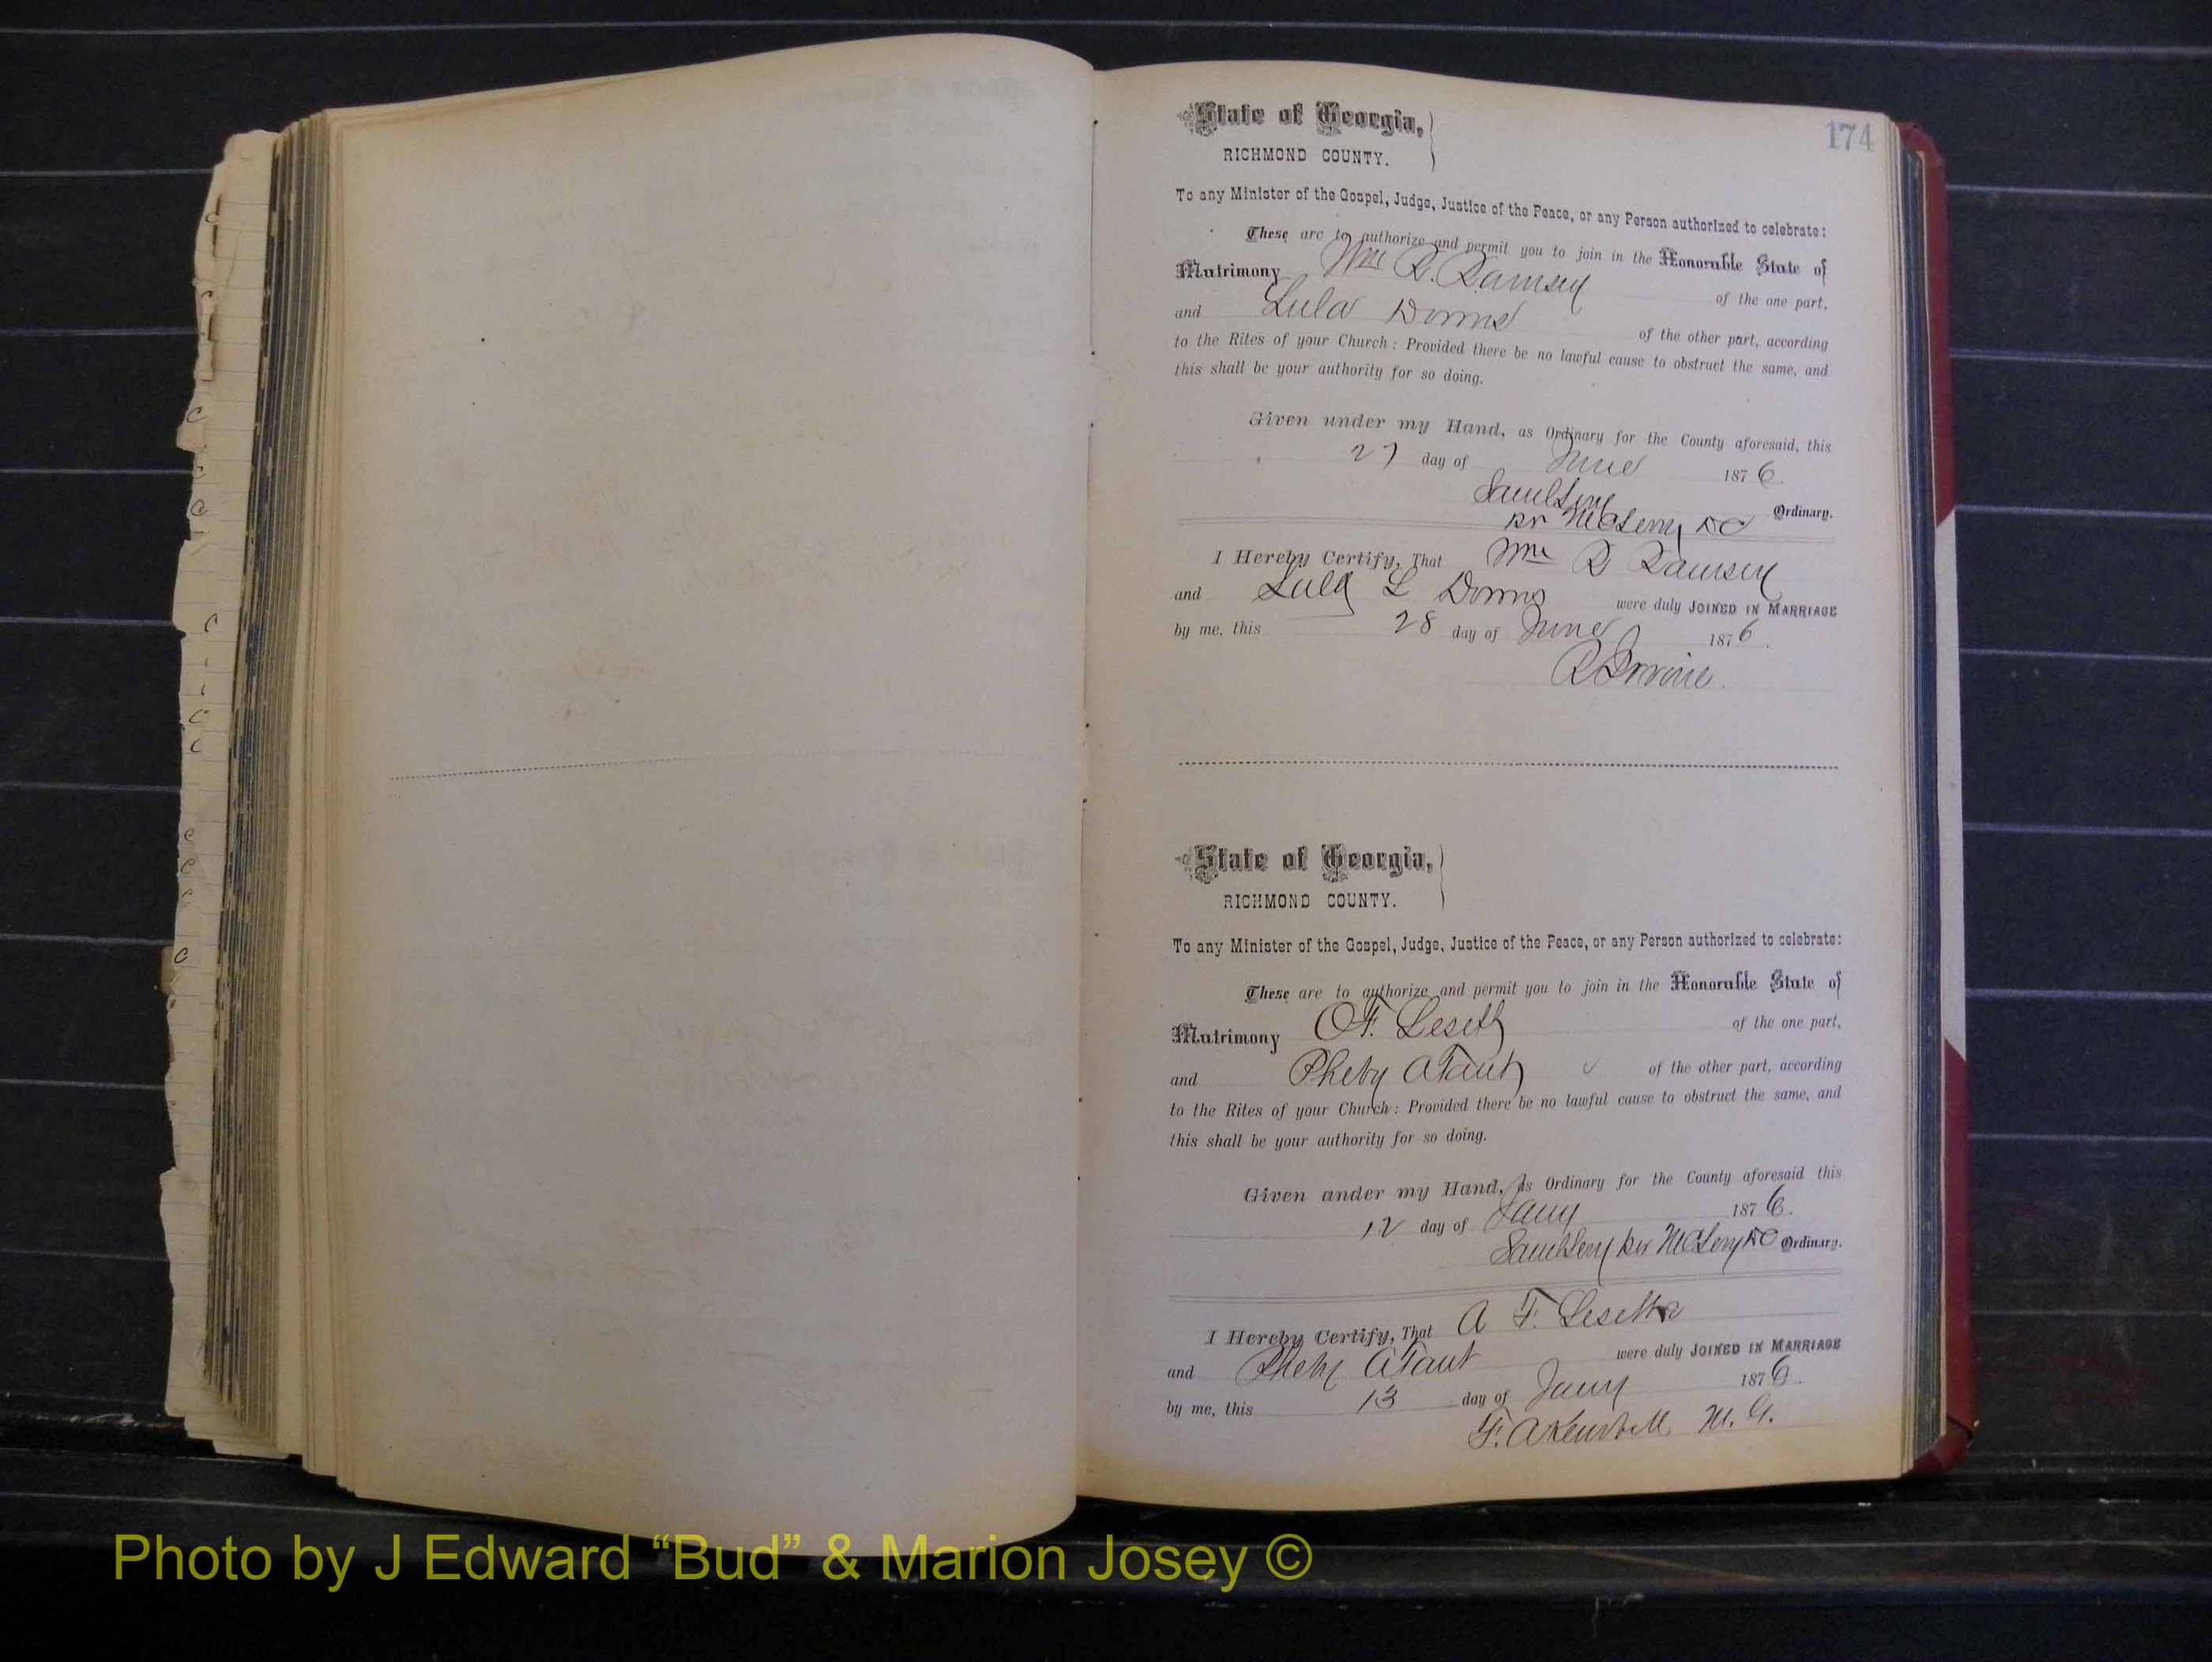 174
State of Georgia,
RICHMOND COUNTY.
To any Minister of the Gospel, Judge, Justice of the Peace, or any Person authorized to celebrate:
These are to authorize and permit you to join in the Honorable State of
Matrimony Wm R. Ramsey of the one part,
and Lula of the other part, according
to the Rites of your Church: Provided there be no lawful cause to obstruct the same, and
this shall be your authority for so doing.
Given under my Hand, as Ordinary for the County aforesaid, this
27 day of June 1876
Saml Levy
Ordinary.
I Hereby Certify, That Wm R Ramsey
and Lula L were duly JOINED IN MARRIAGE
by me, this 28 day of June 1876.
R Irvine.
State of Georgia,
RICHMOND COUNTY.
To any Minister of the Gospel, Judge, Justice of the Peace, or any Person authorized to celebrate:
These are to authorize and permit you to join in the Honorable State of
Matrimony of the one part,
and Pheby of the other part, according
to the Rites of your Church: Provided there be no lawful cause to obstruct the same, and
this shall be your authority for so doing.
Given under my Hand, as Ordinary for the County aforesaid this
12 day of Jany 1876.
Saml Levy Ordinary.
I Hereby Certify, That A F.
and Pheby were duly JOINED IN MARRIAGE
by me, this 13 day of Jany 1876.
M. G.
Photo by J Edward “Bud” & Marion Josey ©